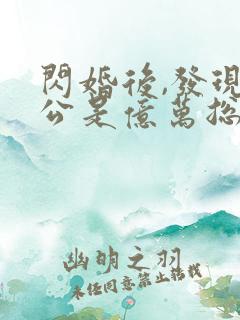 閃婚後,發現
公是億萬總
幽明之羽
未經同意禁止轉載